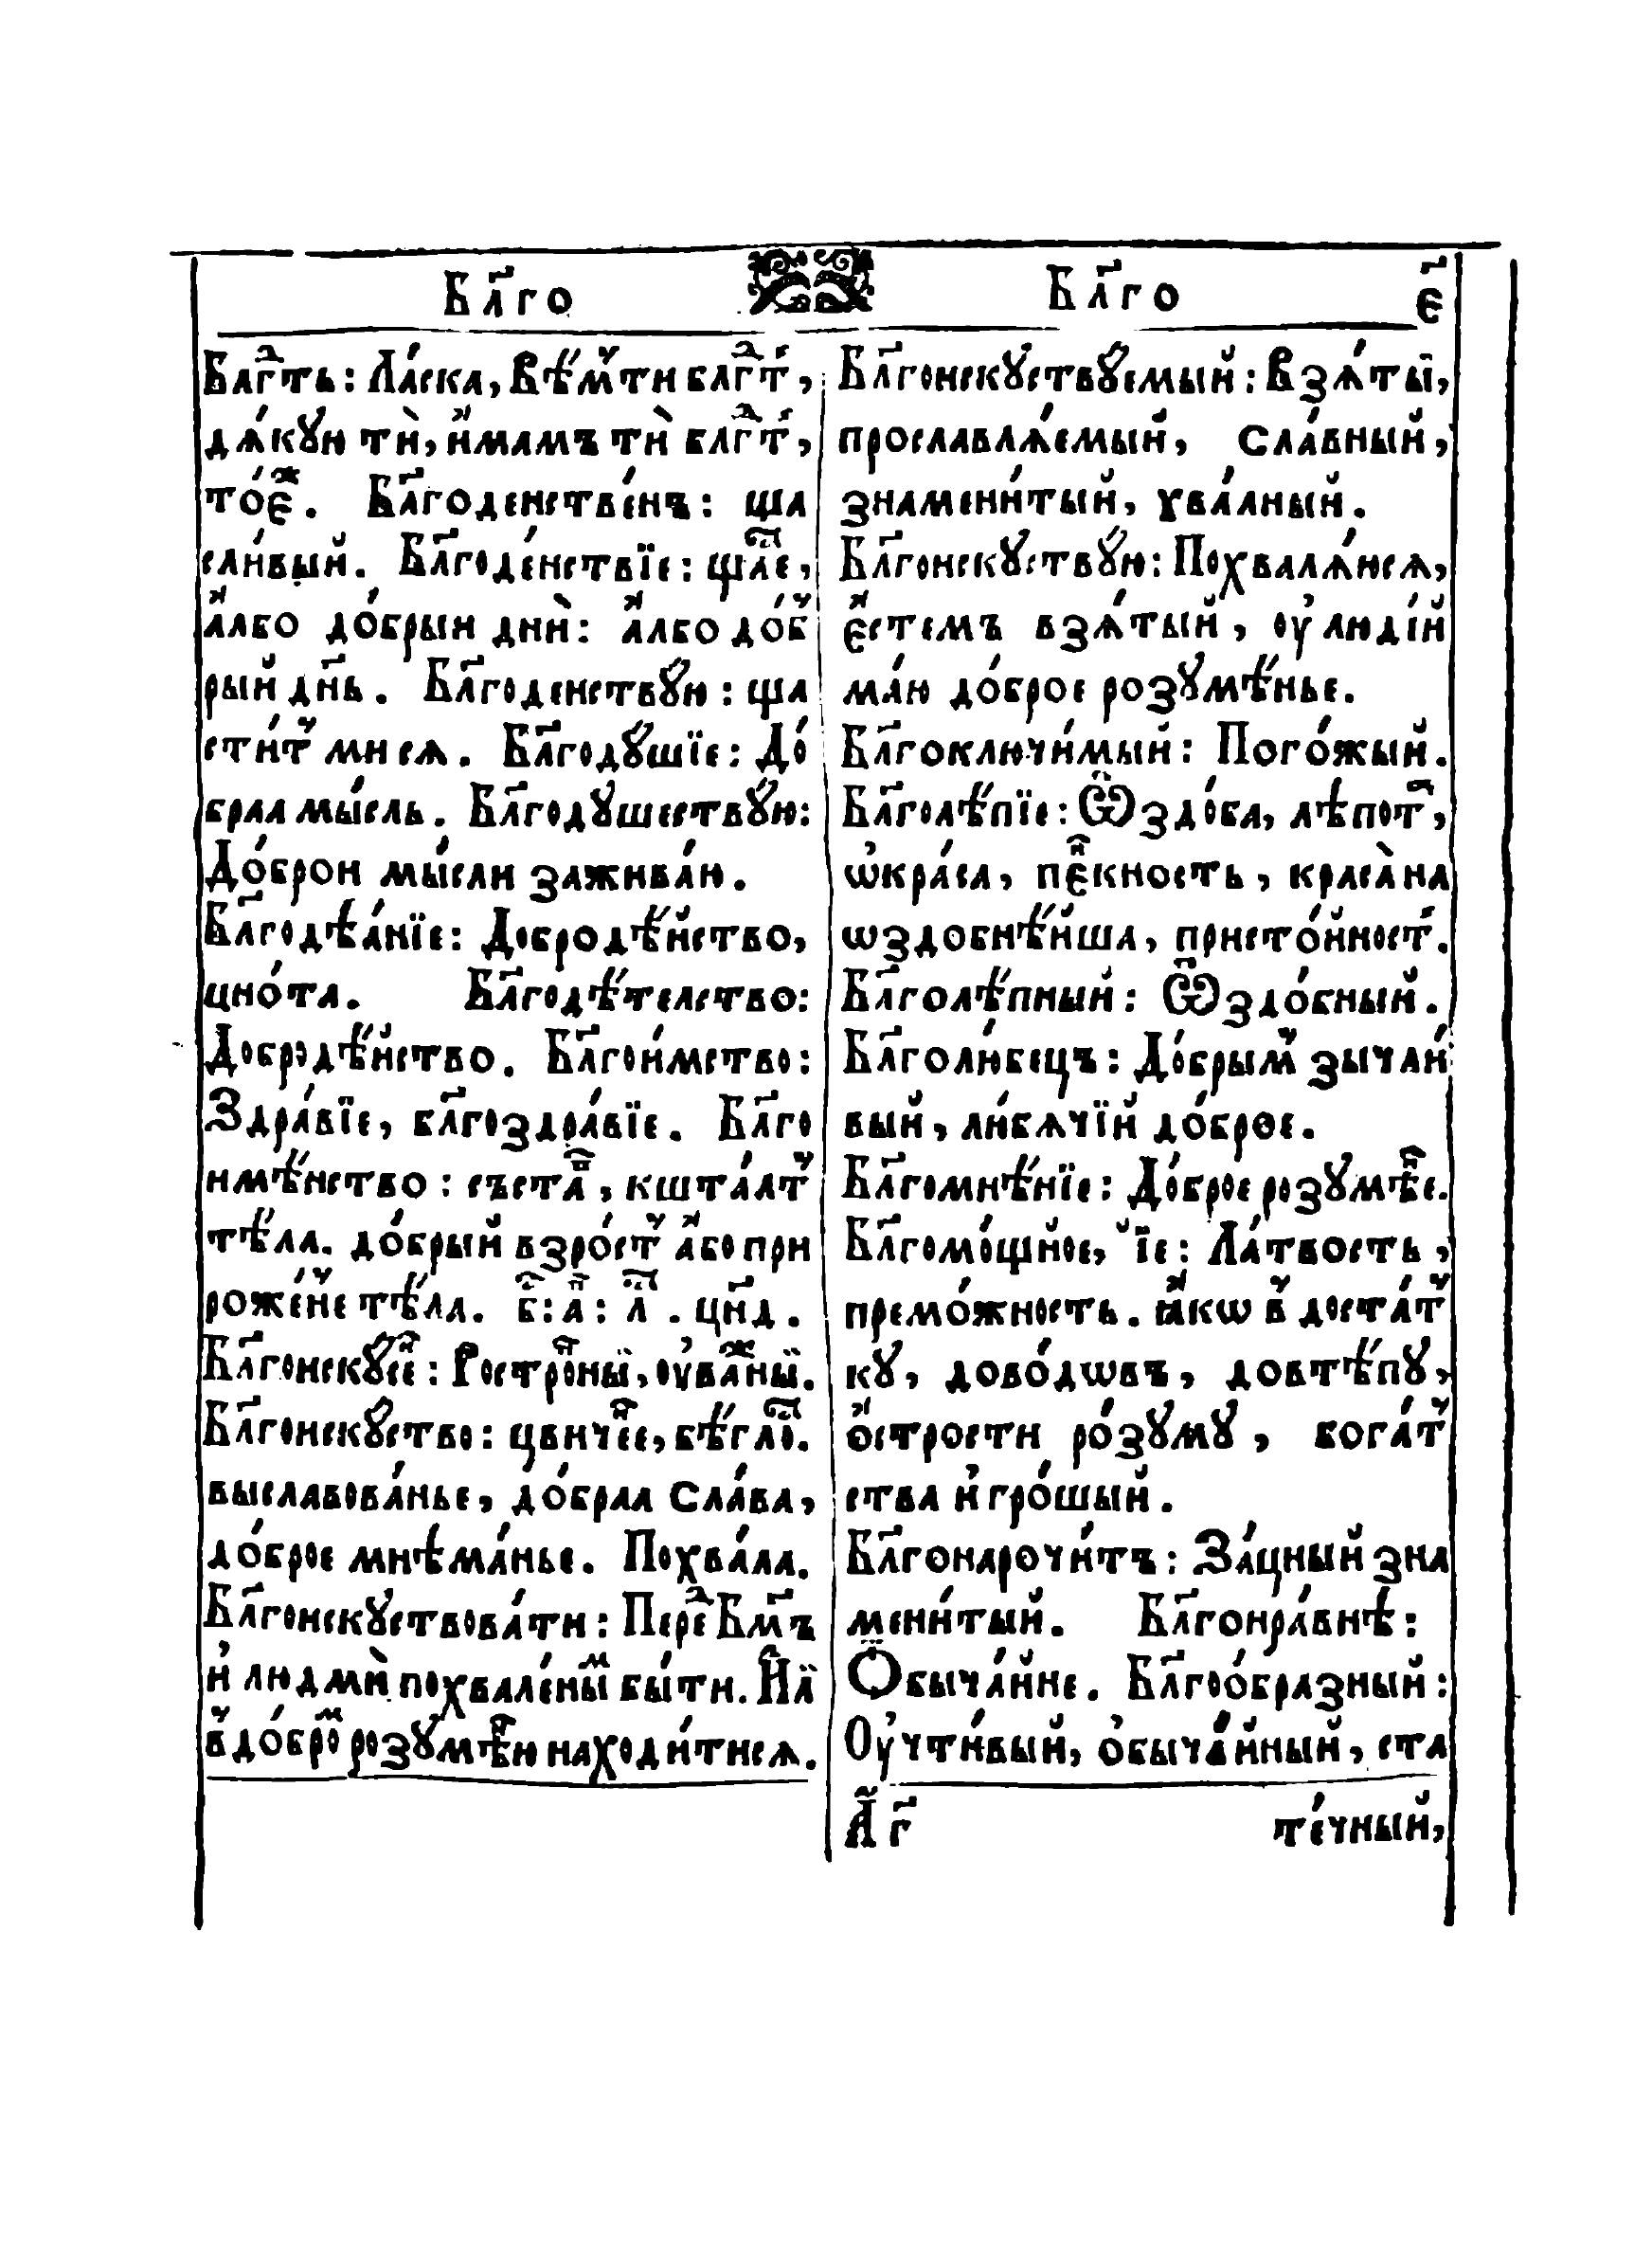 Бл҃го Бл҃го є҃
Благⷣть: Ла́ска, Вѣ́мъ ти блгⷣть,
дѧ́кую тѝ, и҆́мамъ тѝ блгⷣть,
то́еⷤ. Бл҃годенстве́нъ: ща
сли́вый. Бл҃годе́нствїе: щаⷭ҇е,
а҆́лбо до́брыи днѝ: а҆́лбо до́б
рый дн҃ь. Бл҃годенству́ю: ща
сти́т мисѧ. Бл҃году́шїе: До́
браѧ мы́сль. Бл҃годушеству́ю:
До́брои мы́сли зажива́ю.
Бл҃годѣѧ́нїе: Добродѣ́йство,
цно́та. Бл҃годѣ́телство:
Добродѣ́йство. Бл҃гои́мство:
Здра́вїе, бл҃гоздра́вїе. Бл҃го
имѣ́нство: съста́ⷡ, кшта́лт
тѣ́ла. до́брый взро́ст а҆́бо при
роже́не тѣ́ла. цн҃д.
Бл҃гоиску́сеⷩ: Ростро́пⷩый, оува́жⷩый.
Бл҃гоиску́ство: цвиче́ⷩе, бѣ́глоⷭ҇.
выславова́нье, до́браѧ сла́ва,
до́брое мнѣма́нье. Похва́ла.
Бл҃гоискуствова́ти: Переⷣ Бг҃мъ
и҆ людмѝ похвале́ныⷨ бы́ти.
в до́броⷨ розумѣ́ⷩю находи́тисѧ.
Бл҃гоиску́ствуемый: Взѧ́тый,
прославлѧ́емый, сла́вный,
знамени́тый, хва́лный.
Бл҃гоискуству́ю: Похвалѧ́юсѧ,
е҆́стемъ взѧ́тый, оу҆ люді́й
ма́ю до́брое розумѣ́нье.
Бл҃гоключи́мый: Пого́жый.
Бл҃голѣ́пїе: Ѡ҆здо́ба, лѣпотⷭ҇,
ѡ҆кра́са, пе́ⷩкность, краса̀ на
ѡздобнѣ́йшаѧ, присто́йност.
Бл҃голѣ́пный: Ѡ҆здо́бный.
Бл҃голю́бецъ: До́брым зычли́
вый, лю́бѧчїй до́брое.
Бл҃гомнѣ́нїе: До́брое розумѣⷩ҇е.
Бл҃гомо́щное, їе: Ла́твость,
премо́жность. ꙗ҆́кѡ в доста́т
ку, дово́дѡвъ, довтѣ́пу,
о҆́стрости ро́зуму, бога́т
ства и҆ гро́шый.
Бл҃гонарочи́тъ: За́цный зна
мени́тый. Бл҃гонра́внѣ:
Ѻ҆быча́йне. Бл҃гоо́бразный:
Оу҆чти́вый, ѻ҆быча́йный, ста
А҃ г҃ те́чный,